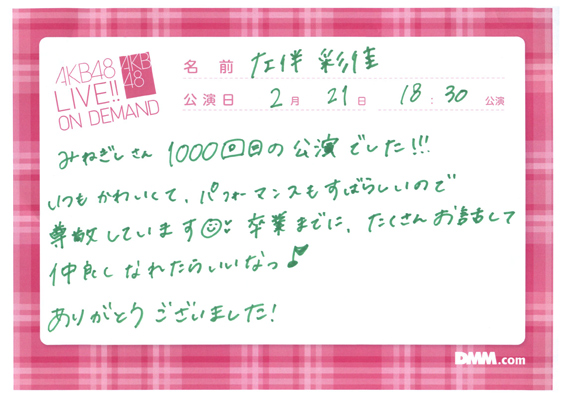 AKB48
LIVE!!
ON DEMAND
AKB
48
名 前 左伴 彩佳
公演日 2月 21日 18:30 公演
みねぎしさん 1000回目の公演でした!!!
いつもかわいくて、パフォーマンスもすばらしいので
尊敬しています 卒業までに、たくさんお話して
仲良しなれたらいいなっ♪
ありがとうございました!
DMM.com